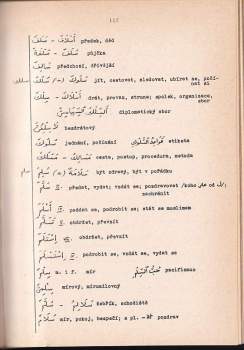 سلف - أسلاف předek, děd
سلف - سلفة půjčka
سالف předchozí, dřívější
سلك سلوك (-) jít, cestovat, sledovat, ubírat se, počínat si
سلك - أسلاك drát, provaz, struna; spolek, organizace, sbor
السلك السياسي diplomatický sbor
لاسلكي bezdrátový
سلوك jednání, počínání قواعد السلوك etiketa
مسلك - مسالك cesta, postup, procedura, metoda
سلم být zdravý, být v pořádku
سلم II. předat, vydat; vzdát se; pozdravovat /koho على/ zachránit
أسلم IV. poddat se, podrobit se; stát se muslimem
تسلم V. obdržet, převzít
استلم obdržet, převzít
استسلم podrobit se, vzdát se, vydat
سلم m. i f. mír pacifismus
سلمي mírový, mírumilovný
سلم - سلالم žebřík, schodiště
سلام mír, pokoj, bezpečí; s pl. -ات pozdrav